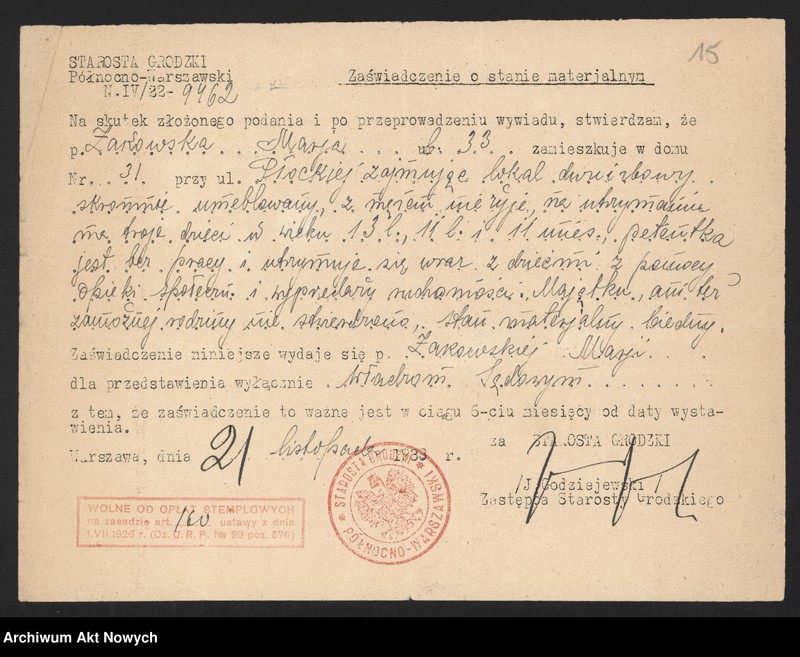 15
STAROSTA GRODZKI
Północno-Warszawski
N.IV/22- 9962
Zaświadczenie o stanie materjalnym
Na skutek złożonego podania i po przeprowadzeniu wywiadu, stwierdzam, że
p. Żakowska Marja l. 33 zamieszkuje w domu
Nr. 31 przy ul. Płockiej zajmując lokal dwuizbowy
skromnie umeblowany, z mężem nie żyje, na utrzymaniu
ma troje dzieci w wieku 13 l., 11 l. i 11 mies., petentka
jest bez pracy i utrzymuje się wraz z dziećmi z pomocy
Opieki społeczn. i wyprzedaży ruchomości. Majątku, ani też
zamożnej rodziny nie stwierdzono, stan materjalny biedny.
Zaświadczenie niniejsze wydaje się p. Żakowskiej Marji
dla przedstawienia wyłącznie Władzom Sądowym
z tem, że zaświadczenie to ważne jest w ciągu 6-ciu miesięcy od daty wysta-
wienia.
za STAROSTA GRODZKI
Warszawa, dnia 21 listopada 1933 r.
/J.Godziejewski/
Zastępca Starosty Grodzkiego
WOLNE OD OPŁAT STEMPLOWYCH
na zasadzie art. 160 ustawy z dnia
1.VII.1926 r. (Dz. U. R. P. № 98 poz. 570)
STAROSTA GRODZKI
PÓŁNOCNO-WARSZAWSKI
Archiwum Akt Nowych